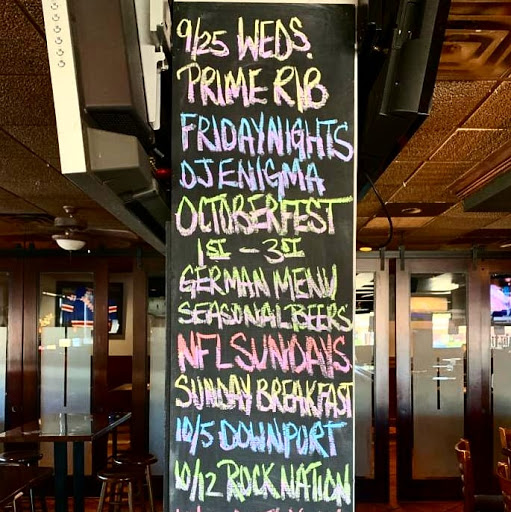 9/25 WEDS.
PRIME RIB
FRIDAY NIGHTS
DJ ENIGMA
OCTOBERFEST
1ST - 3ST
GERMAN MENU
SEASONAL BEERS
NFL SUNDAYS
SUNDAY BREAKFAST
10/5 DOWNPORT
10/12 ROCK NATION